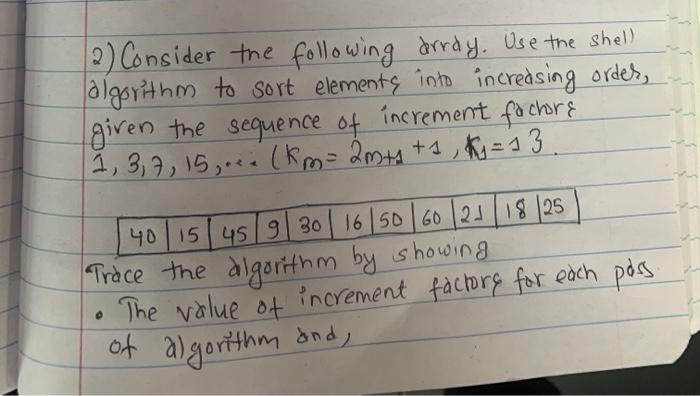 2) Consider the following array. Use the shell
algorithm to sort elements into increasing order,
given the sequence of increment factors
1, 3, 7, 15, ... (Km = 2m+1 + 1, K1 = 1 3
40 | 15 | 45 | 9 | 30 | 16 | 50 | 60 | 21 | 18 | 25
Trace the algorithm by showing
• The value of increment factors for each pass
of algorithm and,